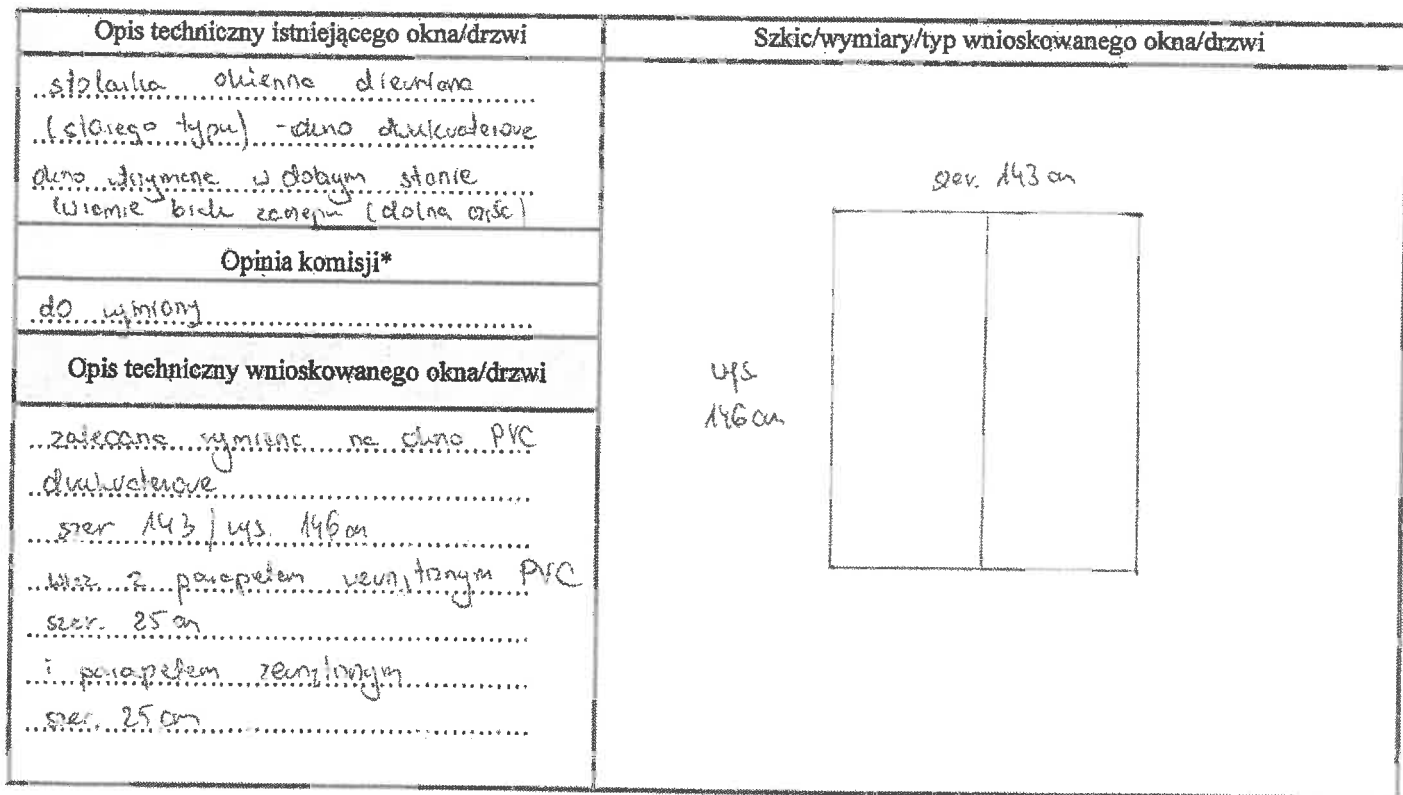 Opis techniczny istniejącego okna/drzwi
stolarka okienna drewniana
(starego typu) - okno dwukwaterowe
okno utrzymane w dobrym stanie
(dolna część)
Opinia komisji*
do wymiany
Opis techniczny wnioskowanego okna/drzwi
zalecana wymiana na okno PVC
dwukwaterowe
szer 143 / wys. 146 cm
wraz z parapetem wewnętrznym PVC
szer. 25 cm
i parapetem zewnętrznym
szer. 25 cm
Szkic/wymiary/typ wnioskowanego okna/drzwi
szer. 143 cm
wys.
146 cm